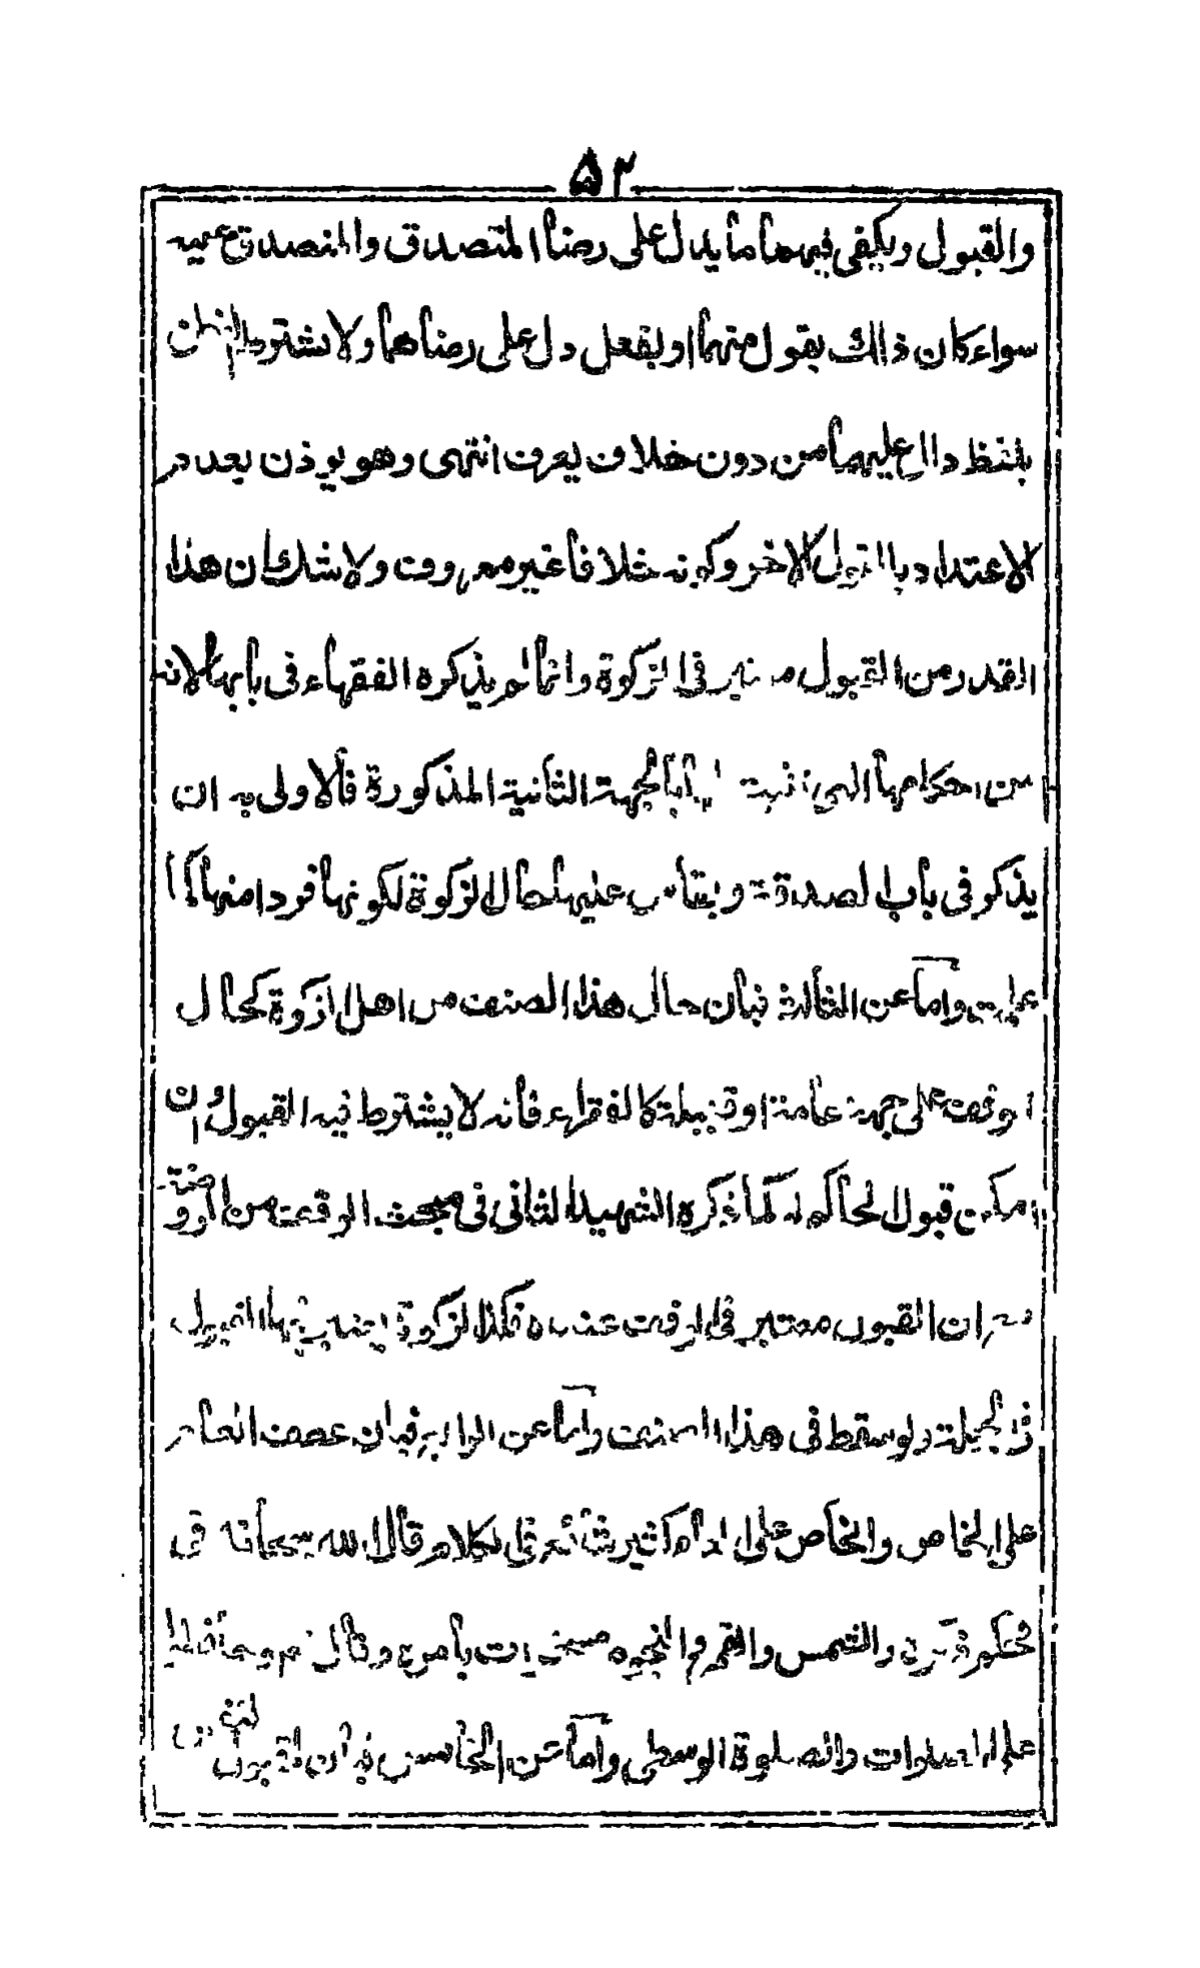 ۵۲
والقبول ويكفى فيهما ما يدل على رضا المتصدق والمتصدق عليه
سواء كان ذالك بقول منهما او بفعل دل على رضاهما ولا يشترط
بلفظ دال عليهما من دون خلاف يعرف انتهى وهو يوذن بعدم
الاعتداد بالقول الاخر وكونه خلافا غير معروف ولا شك ان هذا
القدر من القبول معتبر فى الزكوة وانما لم يذكره الفقهاء فى بابها لانه
من احكامها بالجهة الثانية المذكورة فالاولى به ان
يذكر فى باب الصدقة عليها حال الزكوة لكونها فردا منها كما
واما عن الثالث فبان حال هذا الصنف من اهل الزكوة كحال
الوقف على جهة عامة او قبيلة كالفقراء فانه لا يشترط فيه القبول وان
امكن قبول الحاكم له كما ذكره الشهيد الثانى فى مبحث الوقف من الروضة
ان القبول معتبر فى الوقف عنده فكذا الزكوة يعتبر فيها القبول
فى الجملة ولو سقط فى هذا الصنف واما عن الرابع فبان عطف العام
على الخاص والخاص على العام كثير شائع فى الكلام قال الله سبحانه فى
والشمس والقمر والنجوم مسخرات بامره وقال حافظوا
على الصلوات والصلوة الوسطى واما عن الخامس فبان القبول